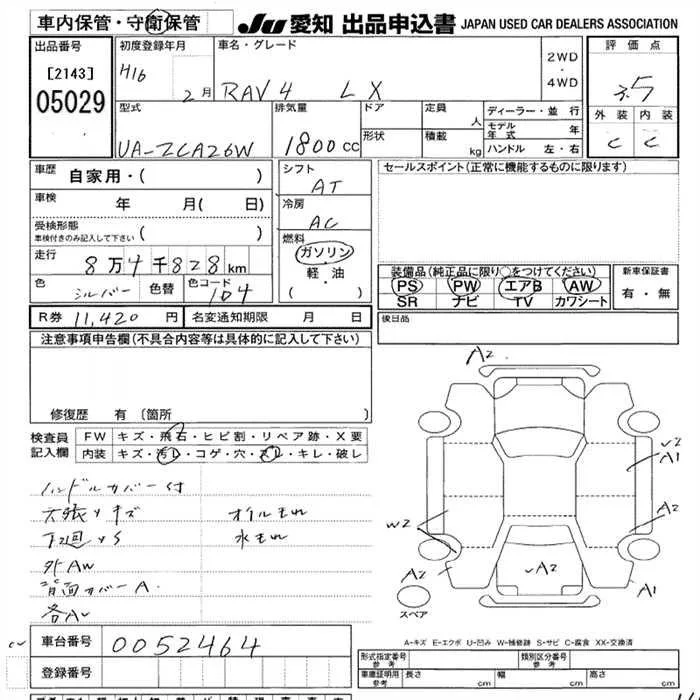 車内保管・守衛保管
JU 愛知 出品申込書 JAPAN USED CAR DEALERS ASSOCIATION
出品番号
[2143]
05029
初度登録年月
H16 2月
車名・グレード
RAV4 LX
2WD
・
4WD
評価点
3.5
外装 内装
C C
型式
UA-ZCA26W
排気量
1800cc
ドア
形状
定員 人
積載 kg
ディーラー・並行
モデル年式 年
ハンドル 左・右
車歴 自家用・( )
車検 年 月( 日)
受検形態
車検付きのみ記入して下さい ( )
走行 8万4千828km
色 シルバー 色替 色コード 104
シフト
AT
冷房
AC
燃料
ガソリン
・
軽・油
( )
セールスポイント(正常に機能するものに限ります)
装備品(純正品に限り○をつけてください)
PS PW エアB AW
SR ナビ TV カワシート
新車保証書
有・無
R券 11,420円 名変通知期限 月 日
後日品
注意事項申告欄(不具合内容等は具体的に記入して下さい)
修復歴 有 [箇所
検査員記入欄
FW キズ・飛石・ヒビ割・リペア跡・X要
内装 キズ・汚レ・コゲ・穴・スレ・キレ・破レ
ハンドルカバー付
天張ヨキズ オイルもれ
下廻ヨS 水もれ
外AW
背面カバーA
各AU
A2
U2
A1
W2
A2
A2
A2
A1
スペア
A-キズ E-エクボ U-凹み W-補修跡 S-サビ C-腐食 XX-交換済
車台番号 0052464
登録番号
形式指定番号 参考 類別区分番号 参考
車庫証明用 参考 長さ cm 幅 cm 高さ cm